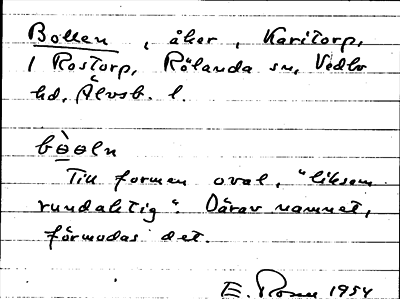 Bollen, åker, Karitorp,
1 Rostorp, Rölanda sn, Vedbo
hd, Älvsb. l.
bòɵln
Till formen oval, "liksom
rundaktig". Därav namnet,
förmodas det.
E. 1954